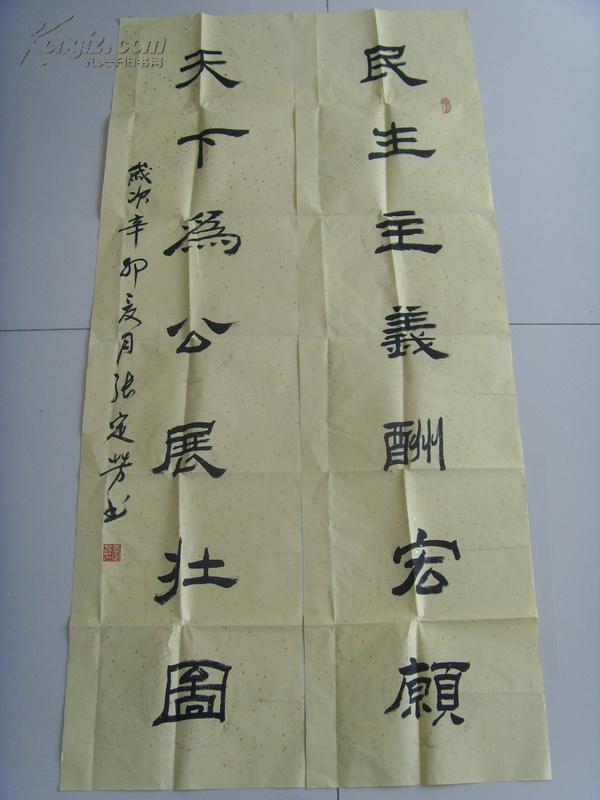 民生主義酬宏願
天下為公展壯圖
歲次辛卯夏月張定芳书
Kongfz.com
孔夫子旧书网